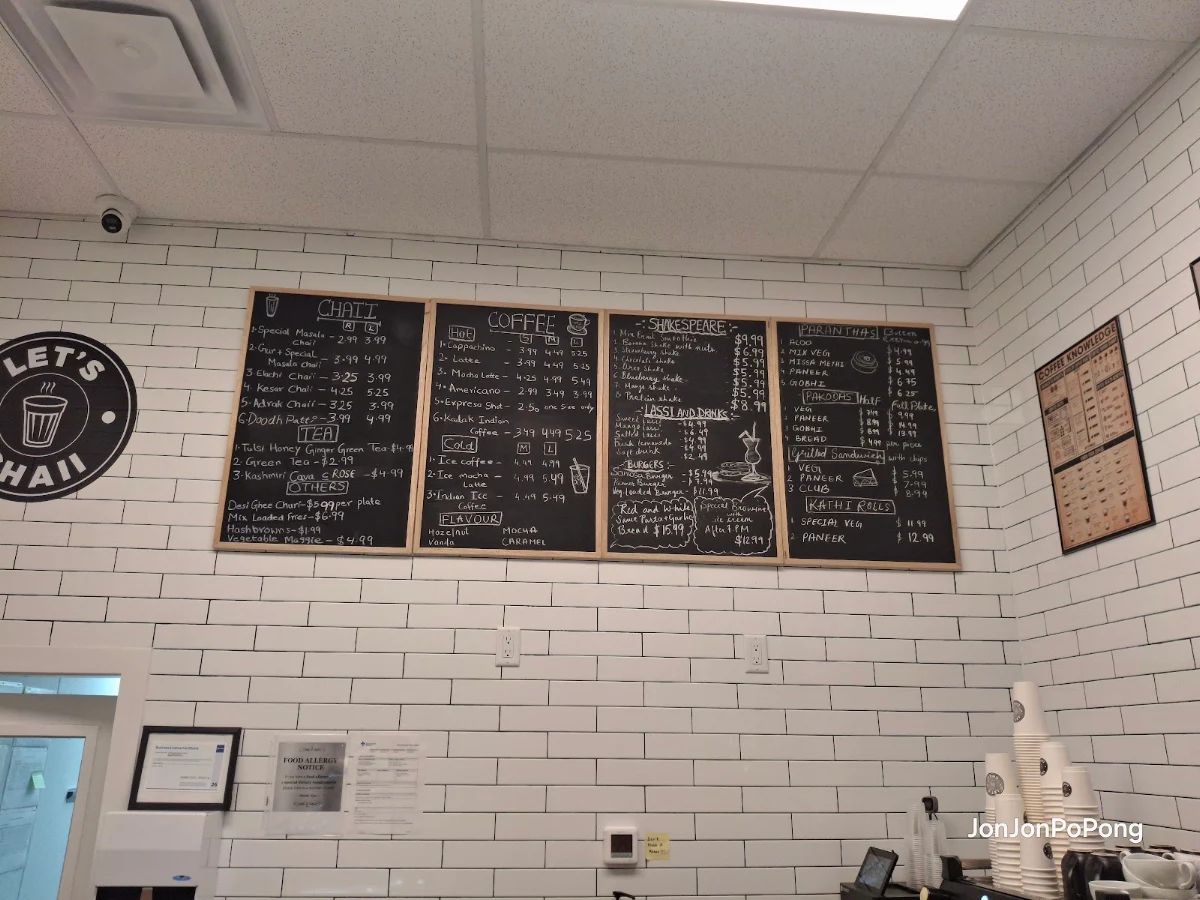 LET'S
CHAII
CHAII
R L
1. Special Masala Chaii - 2.99 3.99
2. Gur + Special Masala Chaii - 3.99 4.99
3. Elachi Chaii - 3.25 3.99
4. Kesar Chaii - 4.25 5.25
5. Adrak Chaii - 3.25 3.99
6. Doodh Patti - 3.99 4.99
TEA
1. Tulsi Honey Ginger Green Tea - $4.99
2. Green Tea - $2.99
3. Kashmiri Cava & ROSE - $4.99
OTHERS
Desi Ghee Churi - $5.99 per plate
Mix Loaded Fries - $6.99
Hashbrowns - $1.99
Vegetable Maggie - $4.99
COFFEE
Hot S M L
1. Cappachino - 3.99 4.49 5.25
2. Lattee - 3.99 4.49 5.25
3. Mocha Latte - 4.25 4.99 5.49
4. Americano - 2.99 3.49 3.99
5. Expreso Shot - 2.50 one size only
6. Kadak Indian
Coffee - 3.49 4.49 5.25
Cold M L
1. Ice coffee - 4.49 4.99
2. Ice mocha - 4.99 5.49
Latte
3. Indian Ice - 4.49 5.49
Coffee
FLAVOUR
Hazelnut MOCHA
Vanila CARAMEL
SHAKESPEARE
1. Mix Fruit Smoothie $9.99
2. Banana Shake with nuts $6.99
3. Strawberry shake $5.99
4. Chocolate shake $5.99
5. Oreo Shake $5.99
6. Blueberry shake $5.99
7. Mango shake $5.99
8. Protein shake $8.99
LASSI AND DRINKS
Sweet Lassi - $4.99
Mango Lassi - $6.49
Salted Lassi $4.99
Fresh lemonade $4.99
Soft drink $2.49
BURGERS
Samosa Burger - $5.99
Paneer Burger - $7.99
Veg. Loaded Burger - $11.99
Red and White
Sauce Pasta + Garlic
Bread $15.99
Special Brownie
with
ice cream
After 7 PM
$12.99
PARANTHAS Butter
ALOO $4.99
2. MIX VEG $5.99
3. MISSA METHI $4.49
4. PANEER $6.75
5. GOBHI $6.25
PAKODAS Half Full Plate
1 VEG
2 PANEER
3 GOBHI
4 BREAD $4.99 per piece
Grilled Sandwich with chips
1 VEG $5.99
2 PANEER $7.99
3 CLUB 8.99
KATHI ROLLS
1 SPECIAL VEG $11.99
2 PANEER $12.99
COFFEE KNOWLEDGE
FOOD ALLERGY
NOTICE
JonJonPoPong